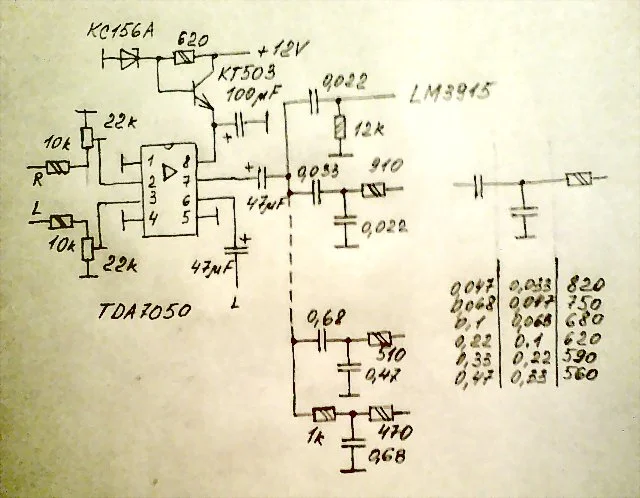 КС156А
620
+12V
КТ503
100µF
+
0,022
LM3915
12k
22k
10k
R
1
8
2
7
3
6
4
5
+
47µF
0,033
910
0,022
L
10k
22k
47µF
+
L
TDA7050
0,68
510
0,47
1k
470
0,68
0,047 0,033 820
0,068 0,047 750
0,1 0,068 680
0,22 0.1 620
0,33 0,22 590
0,47 0,33 560